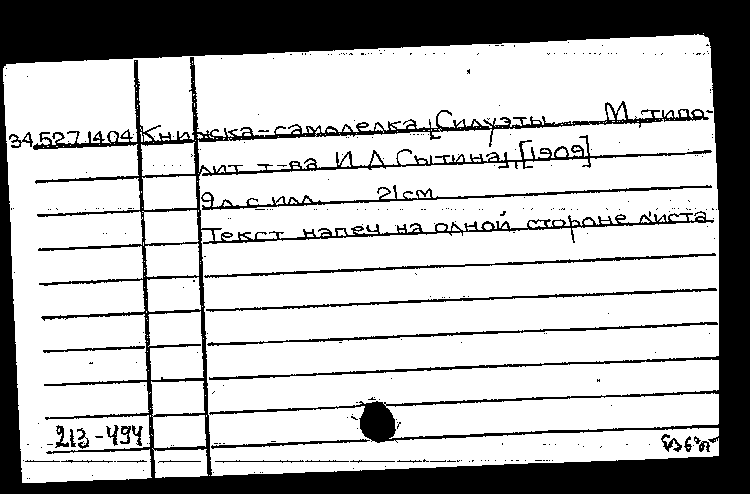 34.527.1404 Книжка-самоделка. [Силуэты. М., типо-
лит. т-ва И. Д. Сытина], [1909]
9 л. с илл. 21 см.
Текст напеч. на одной стороне листа.
213-494